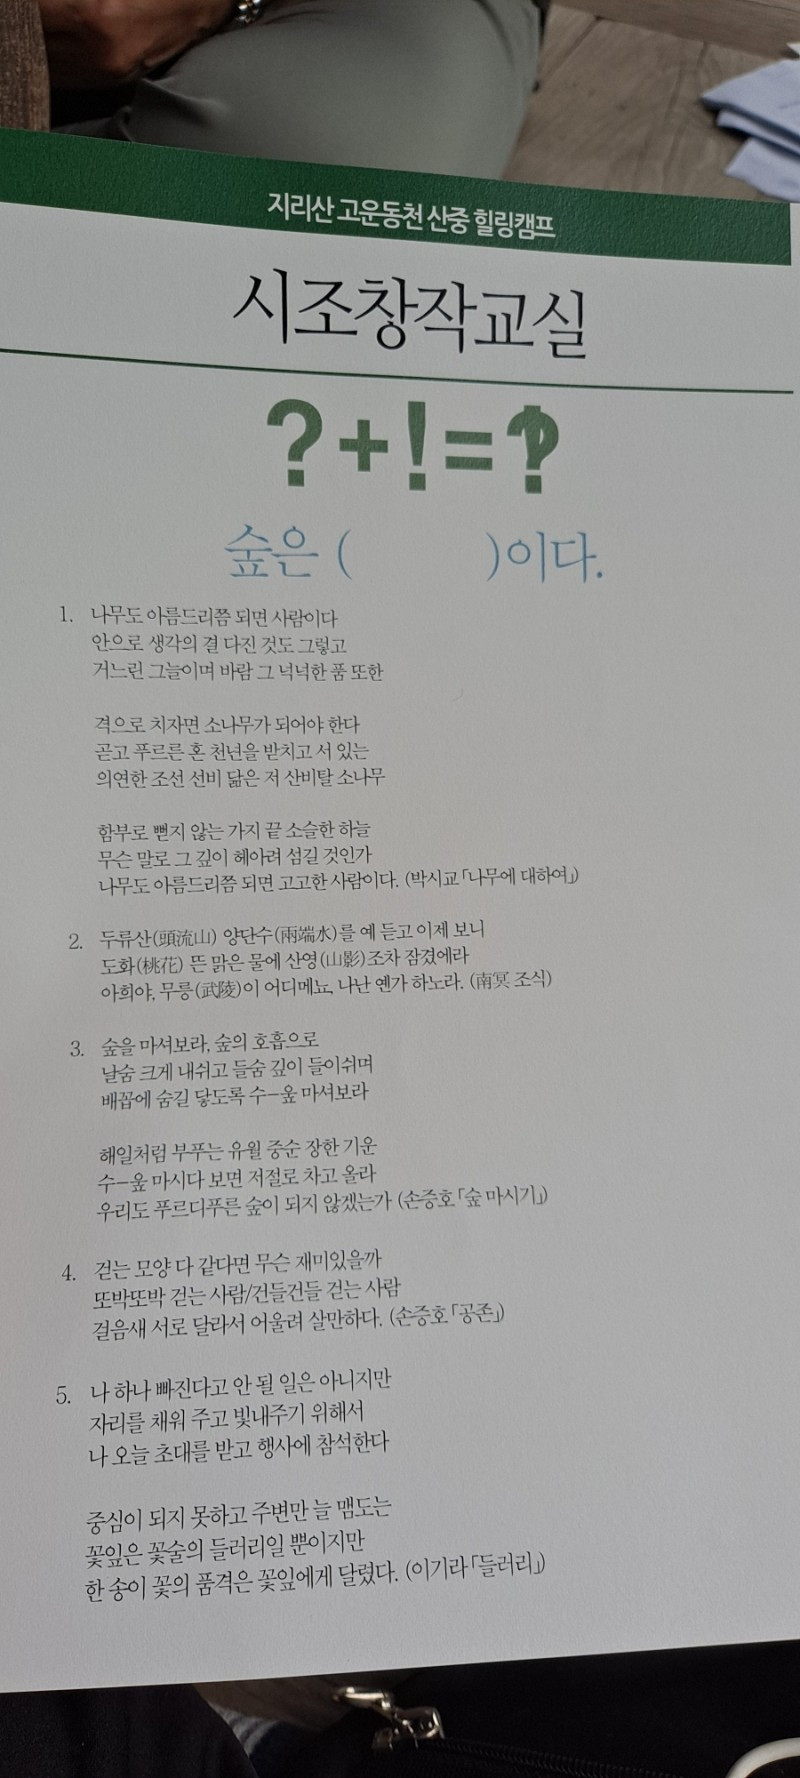 지리산 고운동천 산중 힐링캠프
시조창작교실
?+!=‽
숲은 ( )이다.
1. 나무도 아름드리쯤 되면 사람이다
안으로 생각의 결 다진 것도 그렇고
거느린 그늘이며 바람 그 넉넉한 품 또한
격으로 치자면 소나무가 되어야 한다
곧고 푸르른 혼 천년을 받치고 서 있는
의연한 조선 선비 닮은 저 산비탈 소나무
함부로 뻗지 않는 가지 끝 소슬한 하늘
무슨 말로 그 깊이 헤아려 섬길 것인가
나무도 아름드리쯤 되면 고고한 사람이다. (박시교 「나무에 대하여」)
2. 두류산(頭流山) 양단수(兩端水)를 예 듣고 이제 보니
도화(桃花) 뜬 맑은 물에 산영(山影)조차 잠겼에라
아희야, 무릉(武陵)이 어디메뇨, 나난 옌가 하노라. (南冥 조식)
3. 숲을 마셔보라, 숲의 호흡으로
날숨 크게 내쉬고 들숨 깊이 들이쉬며
배꼽에 숨길 닿도록 수-웊 마셔보라
해일처럼 부푸는 유월 중순 장한 기운
수-웊 마시다 보면 저절로 차고 올라
우리도 푸르디푸른 숲이 되지 않겠는가 (손증호 「숲 마시기」)
4. 걷는 모양 다 같다면 무슨 재미있을까
또박또박 걷는 사람/건들건들 걷는 사람
걸음새 서로 달라서 어울려 살만하다. (손증호 「공존」)
5. 나 하나 빠진다고 안 될 일은 아니지만
자리를 채워 주고 빛내주기 위해서
나 오늘 초대를 받고 행사에 참석한다
중심이 되지 못하고 주변만 늘 맴도는
꽃잎은 꽃술의 들러리일 뿐이지만
한 송이 꽃의 품격은 꽃잎에게 달렸다. (이기라 「들러리」)